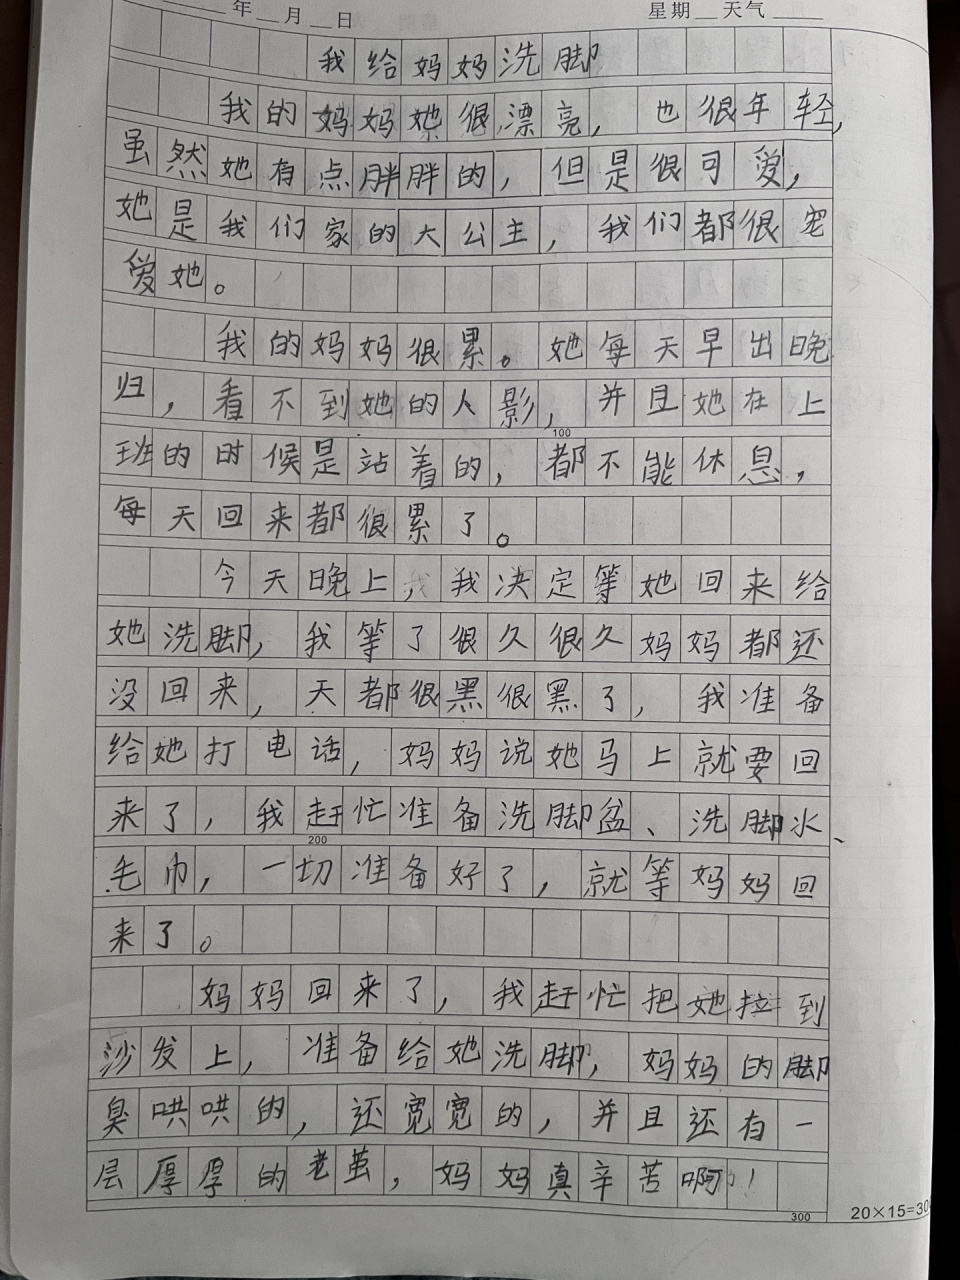 年 月 日 星期 天气
我给妈妈洗脚
我的妈妈她很漂亮，也很年轻，
虽然她有点胖胖的，但是很可爱，
她是我们家的大公主，我们都很宠
爱她。
我的妈妈很累。她每天早出晚
归，看不到她的人影，并且她在上
100
班的时候是站着的，都不能休息，
每天回来都很累了。
今天晚上，我决定等她回来给
她洗脚，我等了很久很久妈妈都还
没回来，天都很黑很黑了，我准备
给她打电话，妈妈说她马上就要回
来了，我赶忙准备洗脚盆、洗脚水、
200
毛巾，一切准备好了，就等妈妈回
来了。
妈妈回来了，我赶忙把她拉到
沙发上，准备给她洗脚，妈妈的脚
臭哄哄的，还宽宽的，并且还有一
层厚厚的老茧，妈妈真辛苦啊！
300
20×15=30